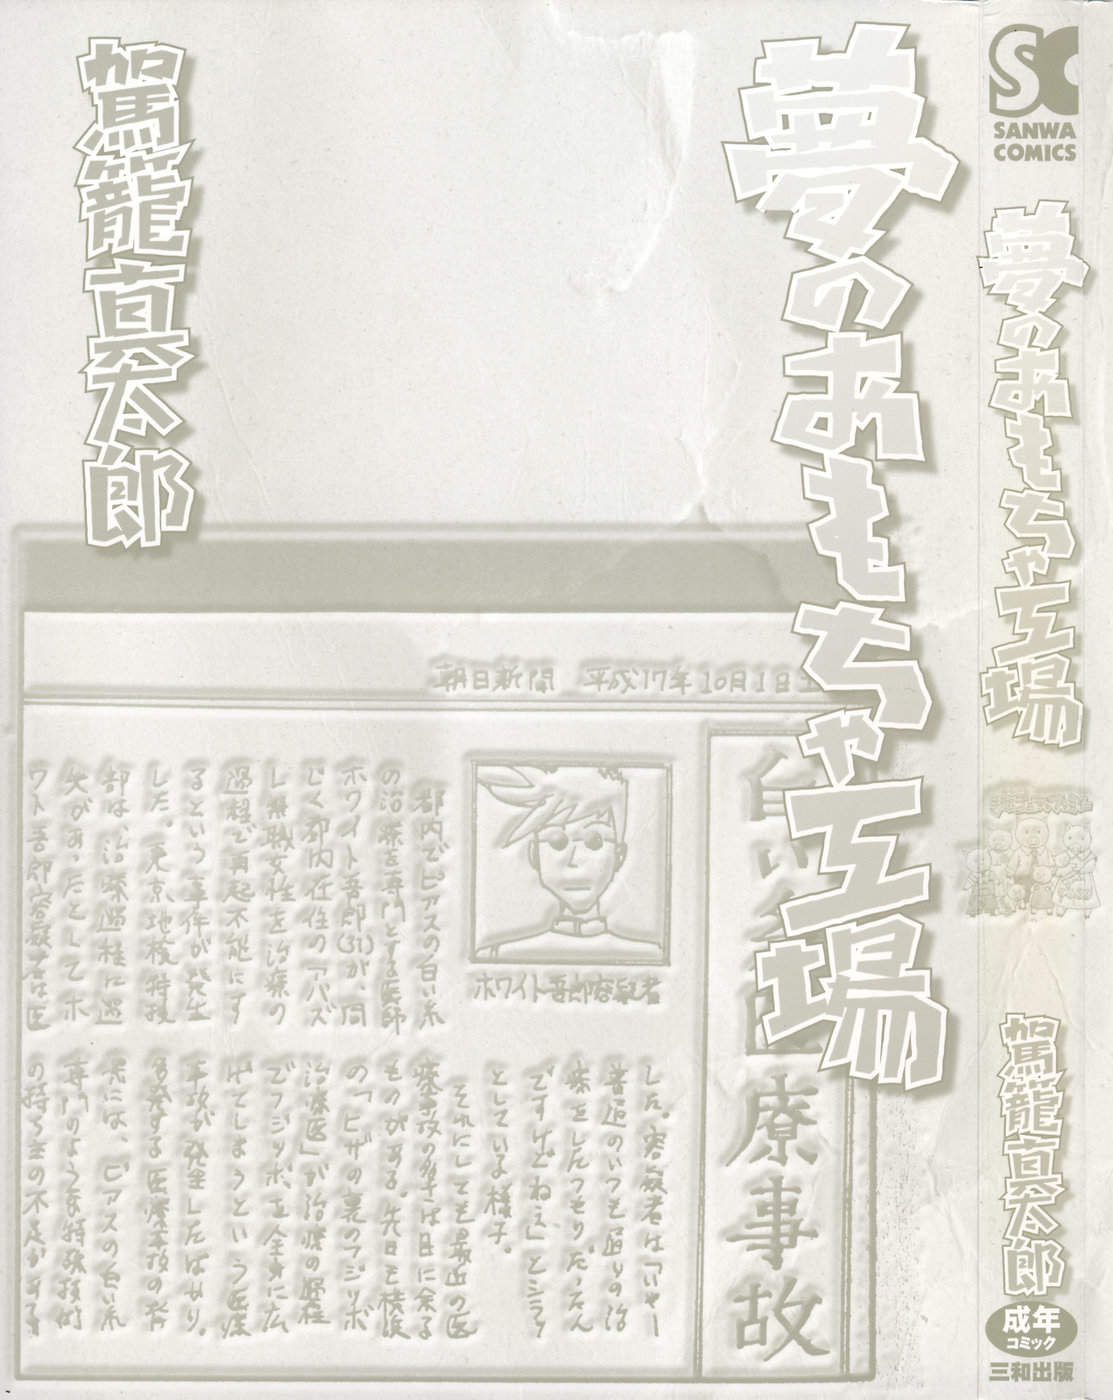 夢のおもちゃ工場
駕籠真太郎
SC
SANWA
COMICS
夢のおもちゃ工場
駕籠真太郎
成年
コミック
三和出版
朝日新聞 平成17年10月1日
白い
医療事故
ホワイト吾郎容疑者
都内でピアスの白い糸
の治療を専門とする医師
ホワイト吾郎(31)が、同
じく都内在住のアパズ
し無職女性を治療の
過程で再起不能にす
るという事件が発生
した。東京地検特捜
部は、治療過程に過
失があったとしてホ
ワイト吾郎容疑者は医
した。容疑者は「いやー
普通のいつも通りの治
療をしたつもりだったん
ですけどねぇ」とシラッ
としている様子。
それにしても最近の医
療事故の多さは目に余る
ものがある。先日も横浜
の「ヒザの裏のフジツボ
治療医」が治療の過程
でフジツボを全身に広
げてしまうという医療
事故が発生したばかり。
多発する医療事故の背
景には、ピアスの白い糸
専門のような特殊技術
の持ち主の不足がある